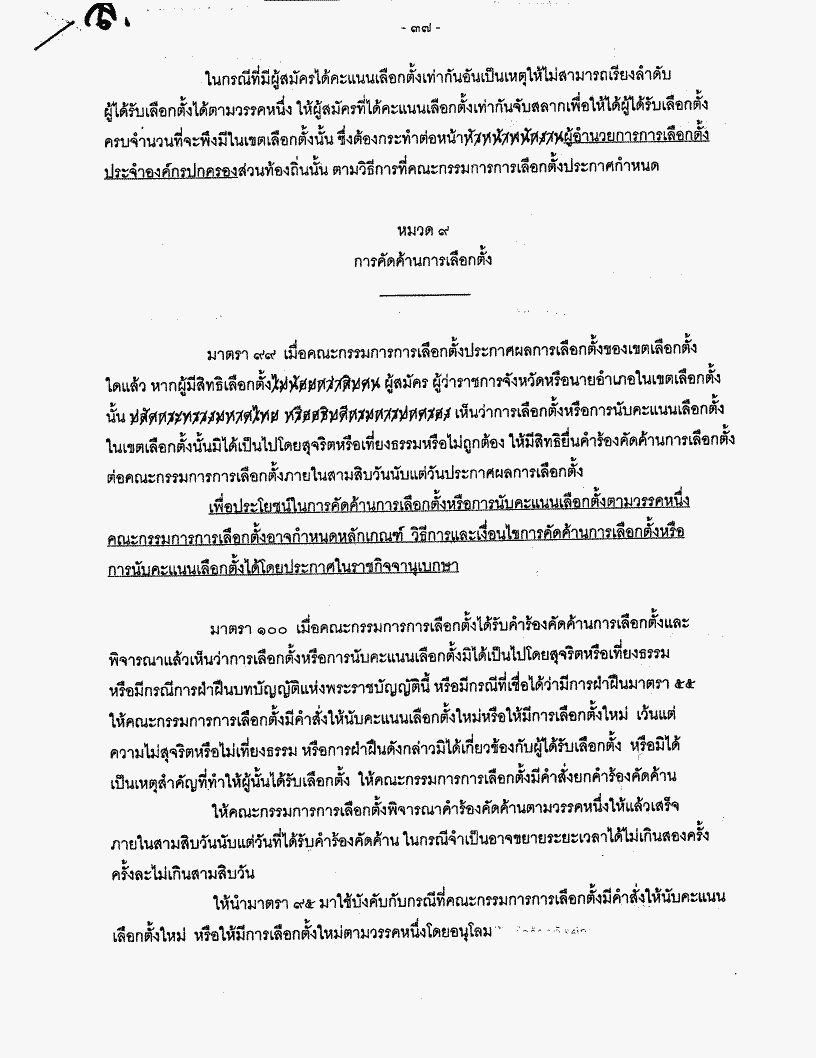 - ๓๗ -
ในกรณีที่มีผู้สมัครได้คะแนนเลือกตั้งเท่ากันอันเป็นเหตุให้ไม่สามารถเรียงลำดับ
ผู้ได้รับเลือกตั้งได้ตามวรรคหนึ่ง ให้ผู้สมัครที่ได้คะแนนเลือกตั้งเท่ากันจับสลากเพื่อให้ได้ผู้ได้รับเลือกตั้ง
ครบจำนวนที่จะพึงมีในเขตเลือกตั้งนั้น ซึ่งต้องกระทำต่อหน้าหัวหน้าพนักงานผู้อำนวยการการเลือกตั้ง
ประจำองค์กรปกครองส่วนท้องถิ่นนั้น ตามวิธีการที่คณะกรรมการการเลือกตั้งประกาศกำหนด
หมวด ๙
การคัดค้านการเลือกตั้ง
มาตรา ๙๙ เมื่อคณะกรรมการการเลือกตั้งประกาศผลการเลือกตั้งของเขตเลือกตั้ง
ใดแล้ว หากผู้มีสิทธิเลือกตั้งไม่น้อยกว่าสิบคน ผู้สมัคร ผู้ว่าราชการจังหวัดหรือนายอำเภอในเขตเลือกตั้ง
นั้น ปลัดกระทรวงมหาดไทย หรืออธิบดีกรมการปกครอง เห็นว่าการเลือกตั้งหรือการนับคะแนนเลือกตั้ง
ในเขตเลือกตั้งนั้นมิได้เป็นไปโดยสุจริตหรือเที่ยงธรรมหรือไม่ถูกต้อง ให้มีสิทธิยื่นคำร้องคัดค้านการเลือกตั้ง
ต่อคณะกรรมการการเลือกตั้งภายในสามสิบวันนับแต่วันประกาศผลการเลือกตั้ง
เพื่อประโยชน์ในการคัดค้านการเลือกตั้งหรือการนับคะแนนเลือกตั้งตามวรรคหนึ่ง
คณะกรรมการการเลือกตั้งอาจกำหนดหลักเกณฑ์ วิธีการและเงื่อนไขการคัดค้านการเลือกตั้งหรือ
การนับคะแนนเลือกตั้งได้โดยประกาศในราชกิจจานุเบกษา
มาตรา ๑๐๐ เมื่อคณะกรรมการการเลือกตั้งได้รับคำร้องคัดค้านการเลือกตั้งและ
พิจารณาแล้วเห็นว่าการเลือกตั้งหรือการนับคะแนนเลือกตั้งมิได้เป็นไปโดยสุจริตหรือเที่ยงธรรม
หรือมีกรณีการฝ่าฝืนบทบัญญัติแห่งพระราชบัญญัตินี้ หรือมีกรณีที่เชื่อได้ว่ามีการฝ่าฝืนมาตรา ๕๕
ให้คณะกรรมการการเลือกตั้งมีคำสั่งให้นับคะแนนเลือกตั้งใหม่หรือให้มีการเลือกตั้งใหม่ เว้นแต่
ความไม่สุจริตหรือไม่เที่ยงธรรม หรือการฝ่าฝืนดังกล่าวมิได้เกี่ยวข้องกับผู้ได้รับเลือกตั้ง หรือมิได้
เป็นเหตุสำคัญที่ทำให้ผู้นั้นได้รับเลือกตั้ง ให้คณะกรรมการการเลือกตั้งมีคำสั่งยกคำร้องคัดค้าน
ให้คณะกรรมการการเลือกตั้งพิจารณาคำร้องคัดค้านตามวรรคหนึ่งให้แล้วเสร็จ
ภายในสามสิบวันนับแต่วันที่ได้รับคำร้องคัดค้าน ในกรณีจำเป็นอาจขยายระยะเวลาได้ไม่เกินสองครั้ง
ครั้งละไม่เกินสามสิบวัน
ให้นำมาตรา ๙๕ มาใช้บังคับกับกรณีที่คณะกรรมการการเลือกตั้งมีคำสั่งให้นับคะแนน
เลือกตั้งใหม่ หรือให้มีการเลือกตั้งใหม่ตามวรรคหนึ่งโดยอนุโลม